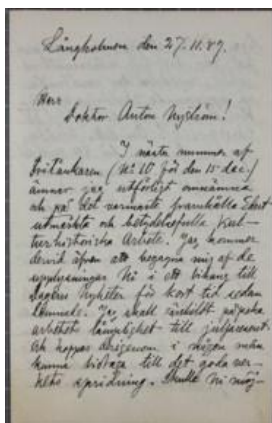 Långholmen den 27.11.89.
Herr
Doktor Anton Nyström!
I nästa nummer af
Fritänkaren (No 10 för den 15 dec.)
ämnar jag utförligt omnämna
och på det varmaste framhålla Edert
utmärkta och betydelsefulla Kul-
turhistoriska Arbete. Jag kommer
dervid äfven att begagna mig af de
upplysningar Ni i ett bihang till
Dagens Nyheter för kort tid sedan
lemnade. Jag skall särskildt påpeka
arbetets lämplighet till julpresent
och hoppas derigenom i någon mån
kunna bidraga till det goda ver-
kets spridning. Skulle Ni möj-